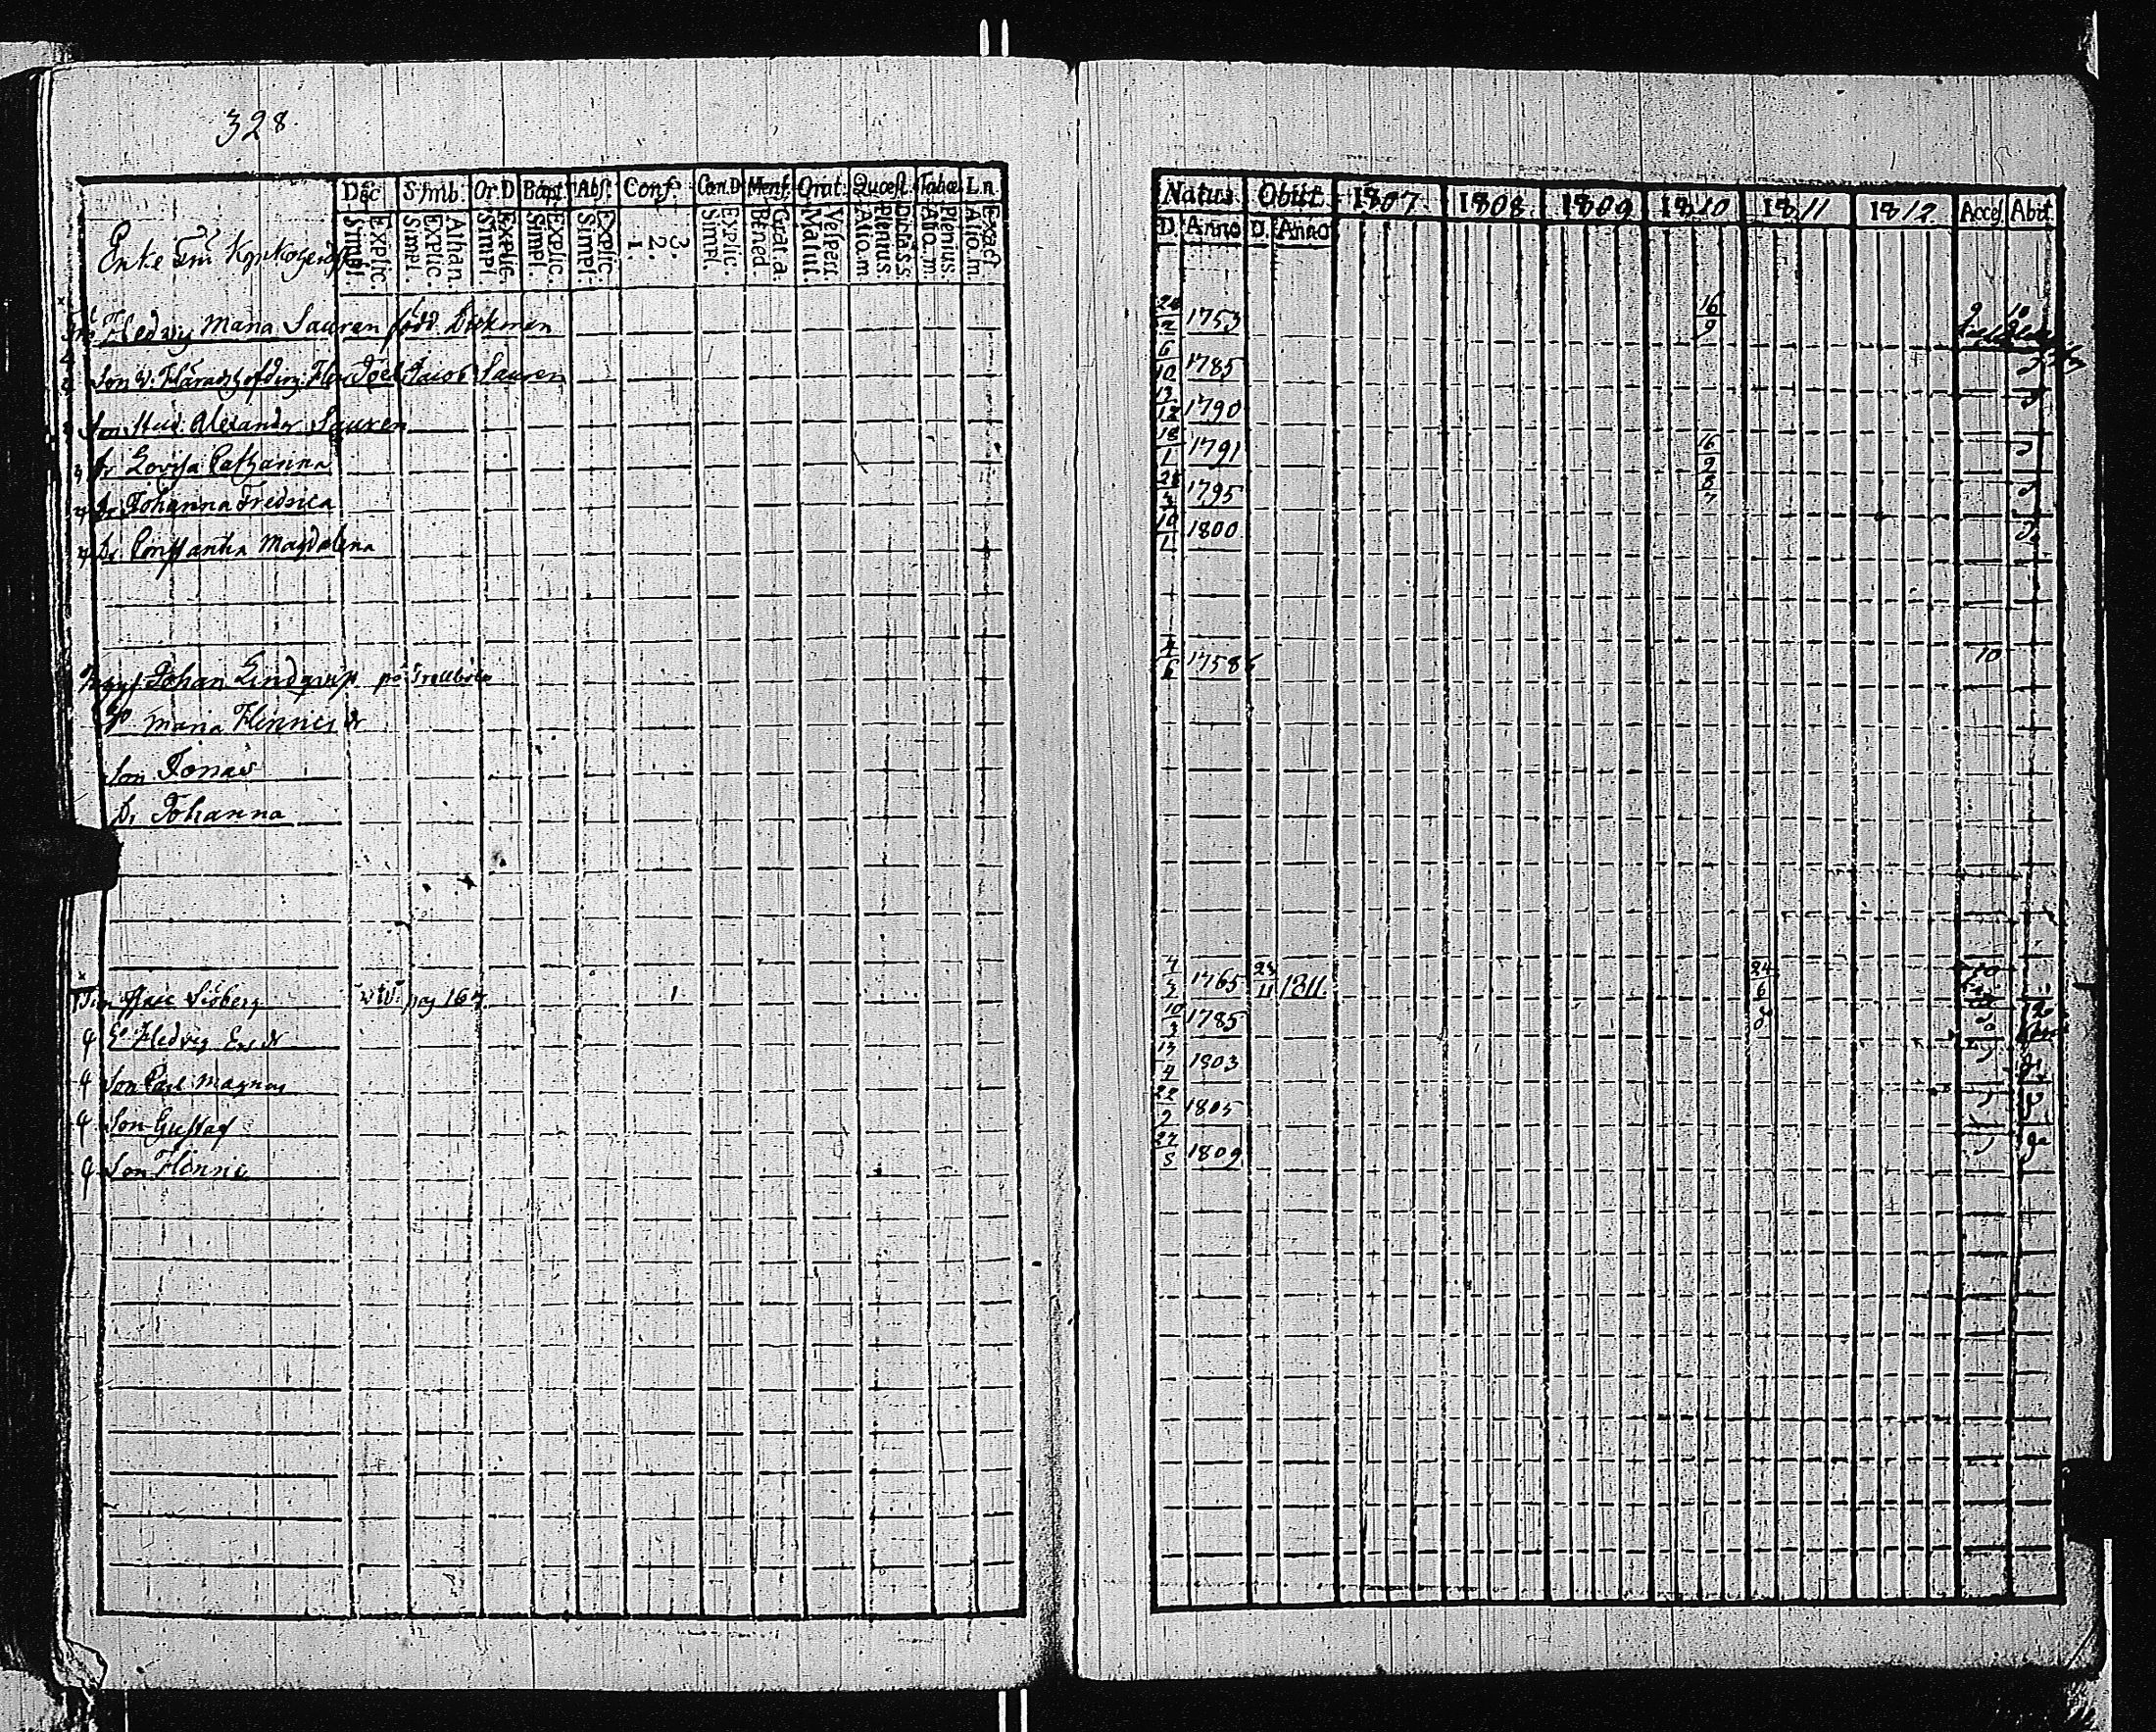 328.
Dec. Simb. Or D Bapt. Abs. Conf. Con.D Mens. Orat. Quæst. Tabæ L.n.
Simpl. Explic. Simpl. Explic. Athan. Simpl. Explic. Simpl. Explic. Simpl. Explic. 1. 2. 3. Simpl. Explic. Bened. Grat. a. Matut. Vespert. Atto. m Plenius Dicta s.s. Atto. m. Plenius. Atto. m. Exact.
Enke Fru
Hedvig Maria Sauren född
Son v. Häradshöfding Herr Joel Jacob Sauren
Son Stud. Alexander Sauren
Dr Lovisa Catharina
Dr Johanna Fredrica
Dr Constantia Magdalena
Johan Lindqvist på Trollböle
Maria Henrics dr
Son Jonas
Dr Johanna
Isaac Siöberg pag 167 1
Hedvig
Son Carl Magnus
Son Gustaf
Son Henric
Natus. Obiit. 1807. 1808. 1809 1810 1811 1812 Acces. Abit.
D. Anno D. Anno
24/2 1753 16/9 9 10
6/10 1785
13/12 1790
18/1 1791 16/9
28/3 1795 8/7
10/1 1800
1758 10
1765 23/11 1811. 24/6 10
10/3 1785
13/4 1803
22/2 1805
27/5 1809